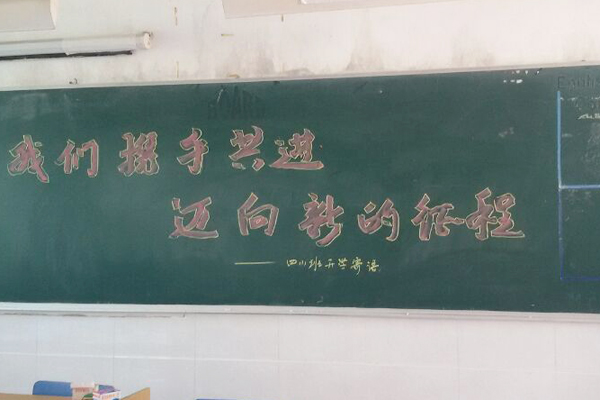 我们携手共进
迈向新的征程
——四(4)班开学寄语